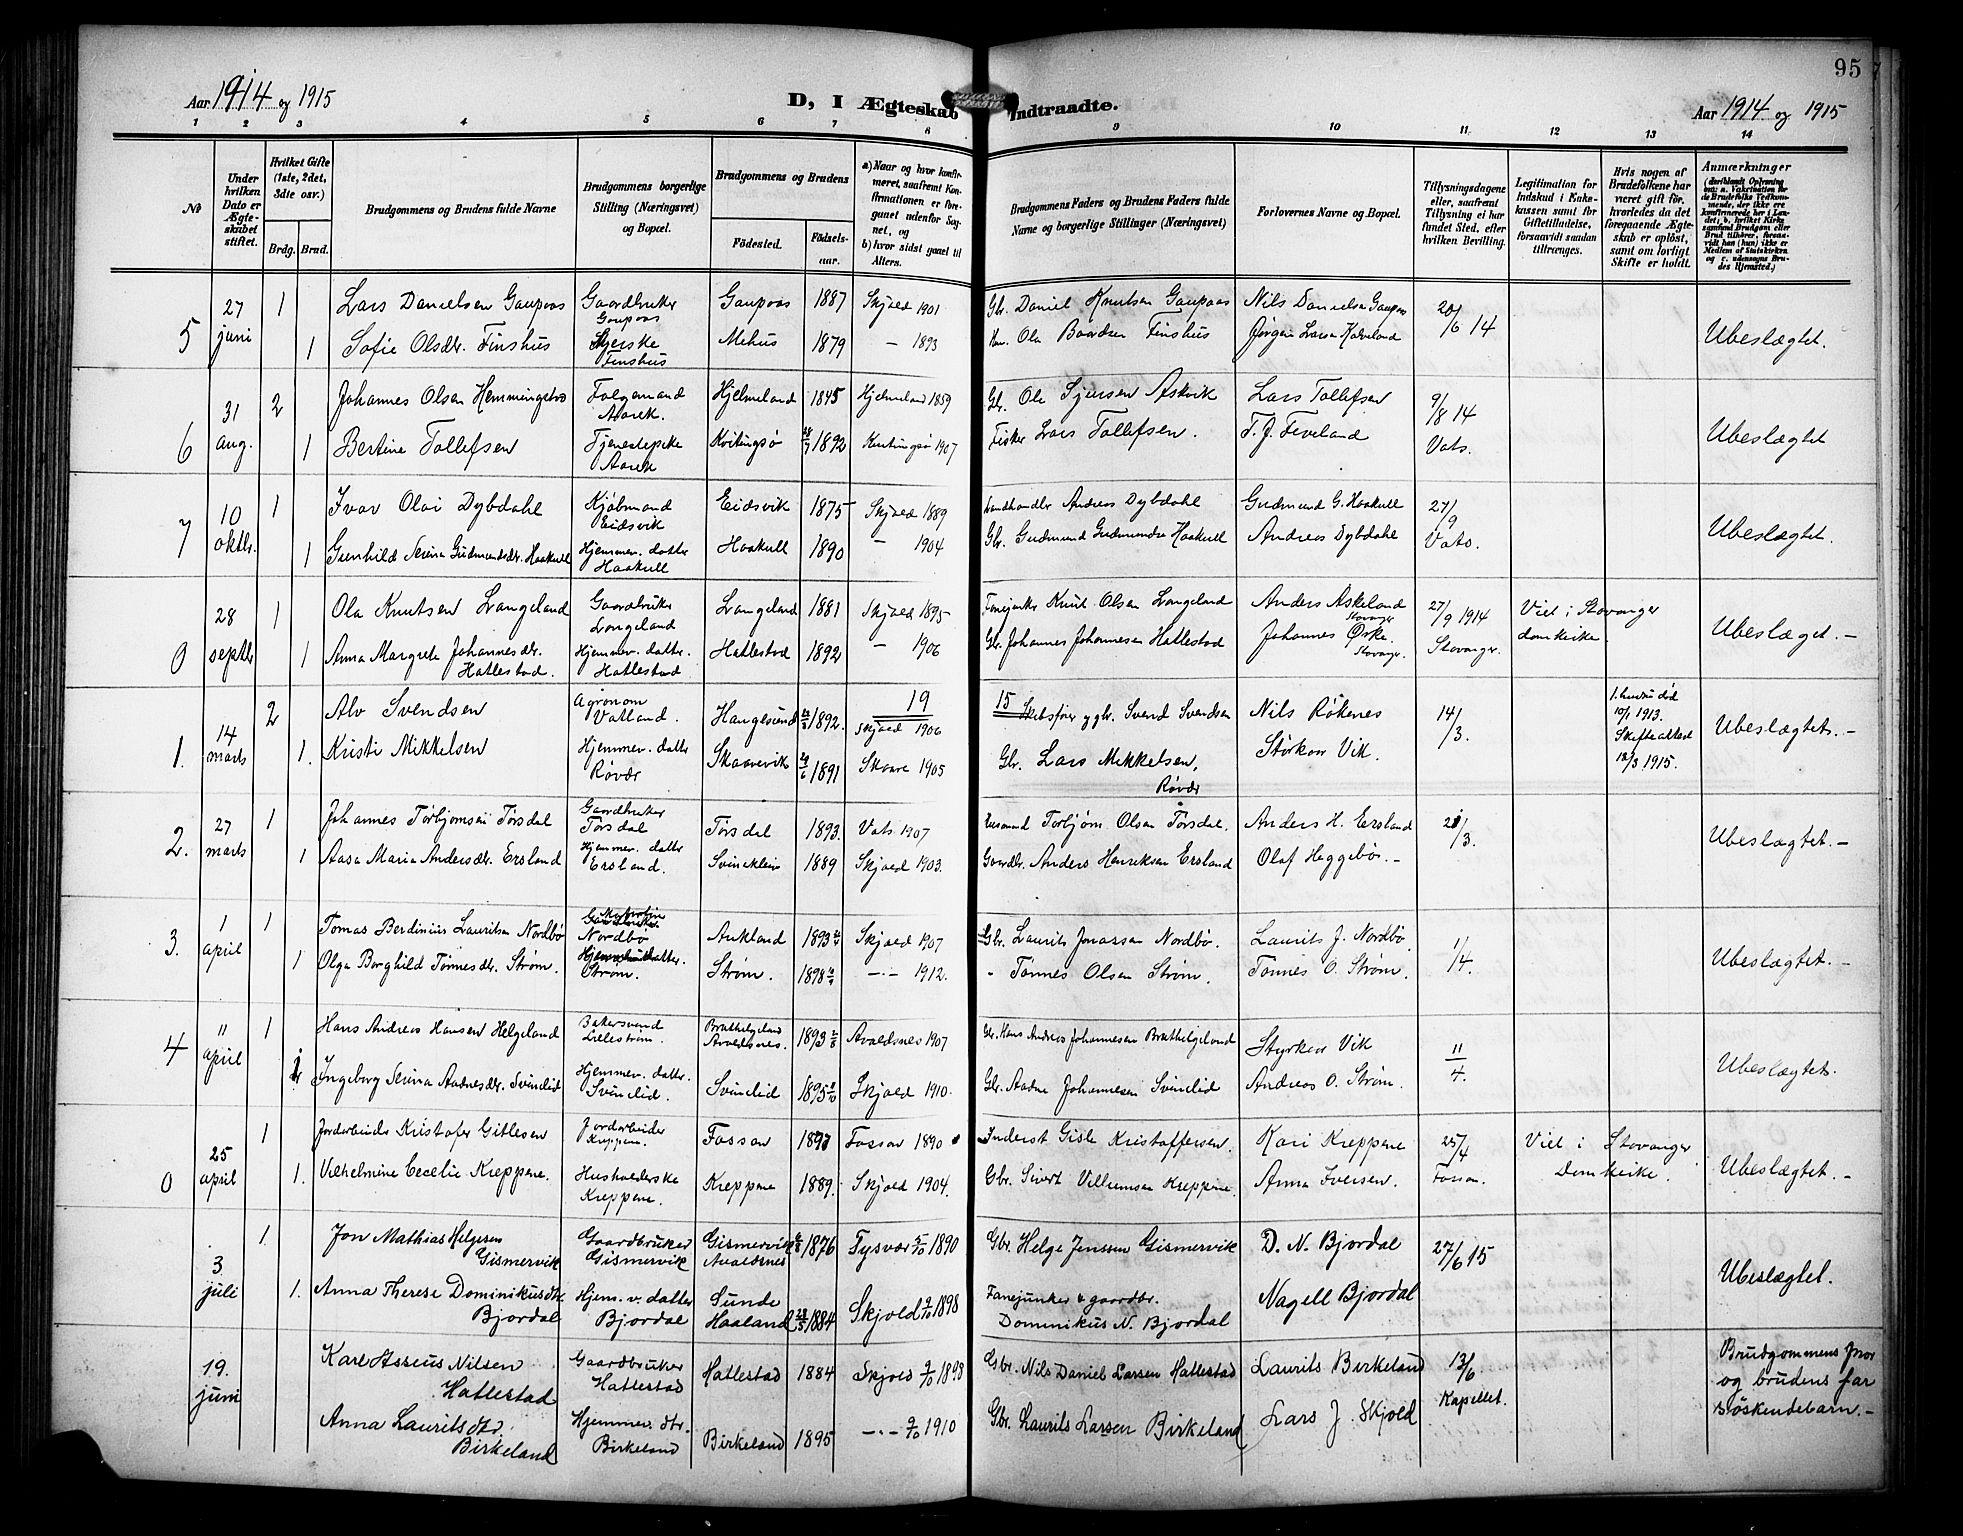 95
Aar 1914 og 1915
D, I Ægteskab Indtraadte.
Aar 1914 og 1915
1 2 3 4 5 6 7 8 9 10 11 12 13 14
No
Under hvilken Dato er Ægteskabet stiftet.
Hvilket Gifte (1ste, 2det, 3die osv.)
Brdg. Brud.
Brudgommens og Brudens fulde Navne
Brudgommens borgerlige Stilling (Næringsvei) og Bopæl.
Brudgommens og Brudens
Fødested.
Fødselsaar.
a) Naar og hvor konfirmeret, saafremt Konfirmationen er foregaaet udenfor Sognet, og
b) hvor sidst gaaet til Alters.
Brudgommens Faders og Brudens Faders fulde Navne og borgerlige Stillinger (Næringsvei)
Forlovernes Navne og Bopæl.
Tillysningsdagene eller, saafremt Tillysning ei har fundet Sted, efter hvilken Bevilling.
Legitimation for Indskud i Enkekassen samt for Giftetilladelse, forsaavidt saadan tiltrænges.
Hvis nogen af Brudefolkene har været gift før, hvorledes da det foregaaende Ægteskab er opløst, samt om lovligt Skifte er holdt.
Anmærkninger
5 27 juni 1 Lars Danielsen Gaupaas Gaardbruker Gaupaas Gaupaas 1887 Skjold 1901 Gbr. Daniel Knutsen Gaupaas Nils Danielsen Gaupaas 20/6 14
1 Sofie Olsdtr. Finshus Finshus Mehus 1879 — 1893 Ola Baardsen Finshus Ubeslægtet.
6 31 aug. 2 Johannes Olsen Aarek. Hjelmeland 1845 Hjelmeland 1859 Gbr. Ole Sjursen Askvik Lars Tollefsen 9/8 14 Vats.
1 Bertine Tollefsen Tjenestepike Aarek Kvitingsø 1892 1907 Fisker Lars Tollefsen. T. J. Feveland Ubeslægtet
7 10 oktbr. 1 Ivar Olai Dybdahl Kjøbmand Eidsvik Eidsvik 1875 Skjold 1889 Landhandler Andreas Dybdahl Gudmund G. Haakull 27/9 Vats.
1 Gunhild Serina Gudmundsdtr. Haakull Hjemmev. datter Haakull Haakull 1890 — 1904 Gbr. Gudmund Gudmundsen Haakull Andreas Dybdahl Ubeslægtet.
0 28 septbr 1 Ola Knutsen Langeland Gaardbruker Langeland Langeland 1881 Skjold 1895 Knut Olsen Langeland Anders Askeland Stavanger 27/9 1914 Stavanger. Viet i Stavanger domkirke.
1 Anna Margrete Johannesdtr. Hatlestad. Hjemmev. datter. Hatlestad Hatlestad 1892 — 1906 Gbr. Johannes Johannesen Hatlestad Johannes Ørke. Stavanger. Ubeslæget. —
19 15
1. 14 marts 2 Alv Svendsen Agronom Vatland. Haugesund 1892. Skjold 1906 Skibsfører og gbr. Svend Svendsen Nils Røkenes 14/3. 1. hustru død 10/1 1913. Skifteattest 12/3 1915.
1. Kristi Mikkelsen Hjemmev. datter Røvær Skaarevik 29/6 1891 Skaare 1905 Gbr. Lars Mikkelsen, Røvær Størkor Vik. Ubeslægtet. —
2. 27 marts 1 Johannes Torbjørnsen Tørsdal Gaardbruker Tørsdal Tørsdal 1893. Vats 1907 Torbjørn Olsen Tørsdal. Anders H. Ersland 21/3.
1 Aasa Maria Andersdtr. Ersland Hjemmev. datter Ersland. Svineklein 1889 Skjold 1903. Gaardbr. Anders Henriksen Ersland Olaf Heggebø. — Ubeslægtet. —
3. 1 april 1 Tomas Berdinius Lauritsen Nordbø Nordbø Aukland 1893 Skjold 1907 Gbr. Laurits Jonassen Nordbø. Laurits J. Nordbø 1/4.
1 Olga Borghild Tønnesdtr. Strøm. Strøm. Strøm. 1898 —·— 1912. " Tønnes Olsen Strøm. Tønnes O. Strøm. Ubeslægtet. —
4 11 april 1 Hans Andreas Hansen Helgeland Bakersvend Lillestrøm. Brathelgeland Avaldsnes. 1893 Avaldsnes 1907 Gbr. Hans Andreas Johannesen Brathelgeland Styrkor Vik 11/4.
1 Ingeborg Serina Aadnesdtr. Svinelid Hjemmev. datter. Svinelid. Svinelid 1895 Skjold 1910. Gbr. Aadne Johannesen Svinelid Andreas O. Strøm. Ubeslægtet.
0 25 april 1 Jordarbeider Kristofer Gitlesen Jordarbeider Kreppene. Fossan 1897 Fossan 1890 Inderst Gisle Kristoffersen. Kari Kreppene 25/4 Fossan. Viet i Stavanger Domkirke.
1. Vilhelmine Cecelie Kreppene. Husholderske Kreppene. Kreppene 1889. Skjold 1904. Gbr. Sivert Villumsen Kreppene. Anna Iversen. Ubeslægtet. —
3 juli 1. Jon Mathias Helgesen Gismervik Gaardbruker Gismervik Gismervik Avaldsnes 1876 Tysvær 5/10 1890 Gbr. Helge Jenssen Gismervik D. N. Bjordal 27/6 15
1. Anna Therese Dominikusdtr. Bjordal Hjem. v. datter Bjordal Sunde Haaland 28/5 1884 Skjold 9/10 1898 Fanejunker & gaardbr. Dominikus N. Bjordal Nagell Bjordal Ubeslægtet.
19. juni Karl Asseus Nilsen Hatlestad Gaardbruker Hatlestad Hatlestad 1884 Skjold 9/10 1898 Gbr. Nils Daniel Larsen Hatlestad Laurits Birkeland 13/6 Kapellet. Brudgommens mor og brudens far søskendebarn. —
Anna Lauritsdtr. Birkeland Hjemmev. dtr. Birkeland Birkeland 1895 —·— 9/10 1910 Gbr. Laurits Larsen Birkeland Lars J. Skjold